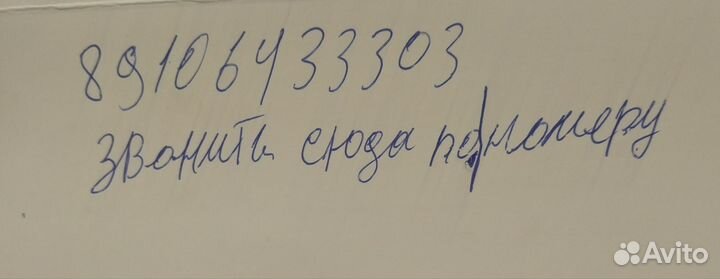 89106433303
звонить сюда по|номеру
Avito